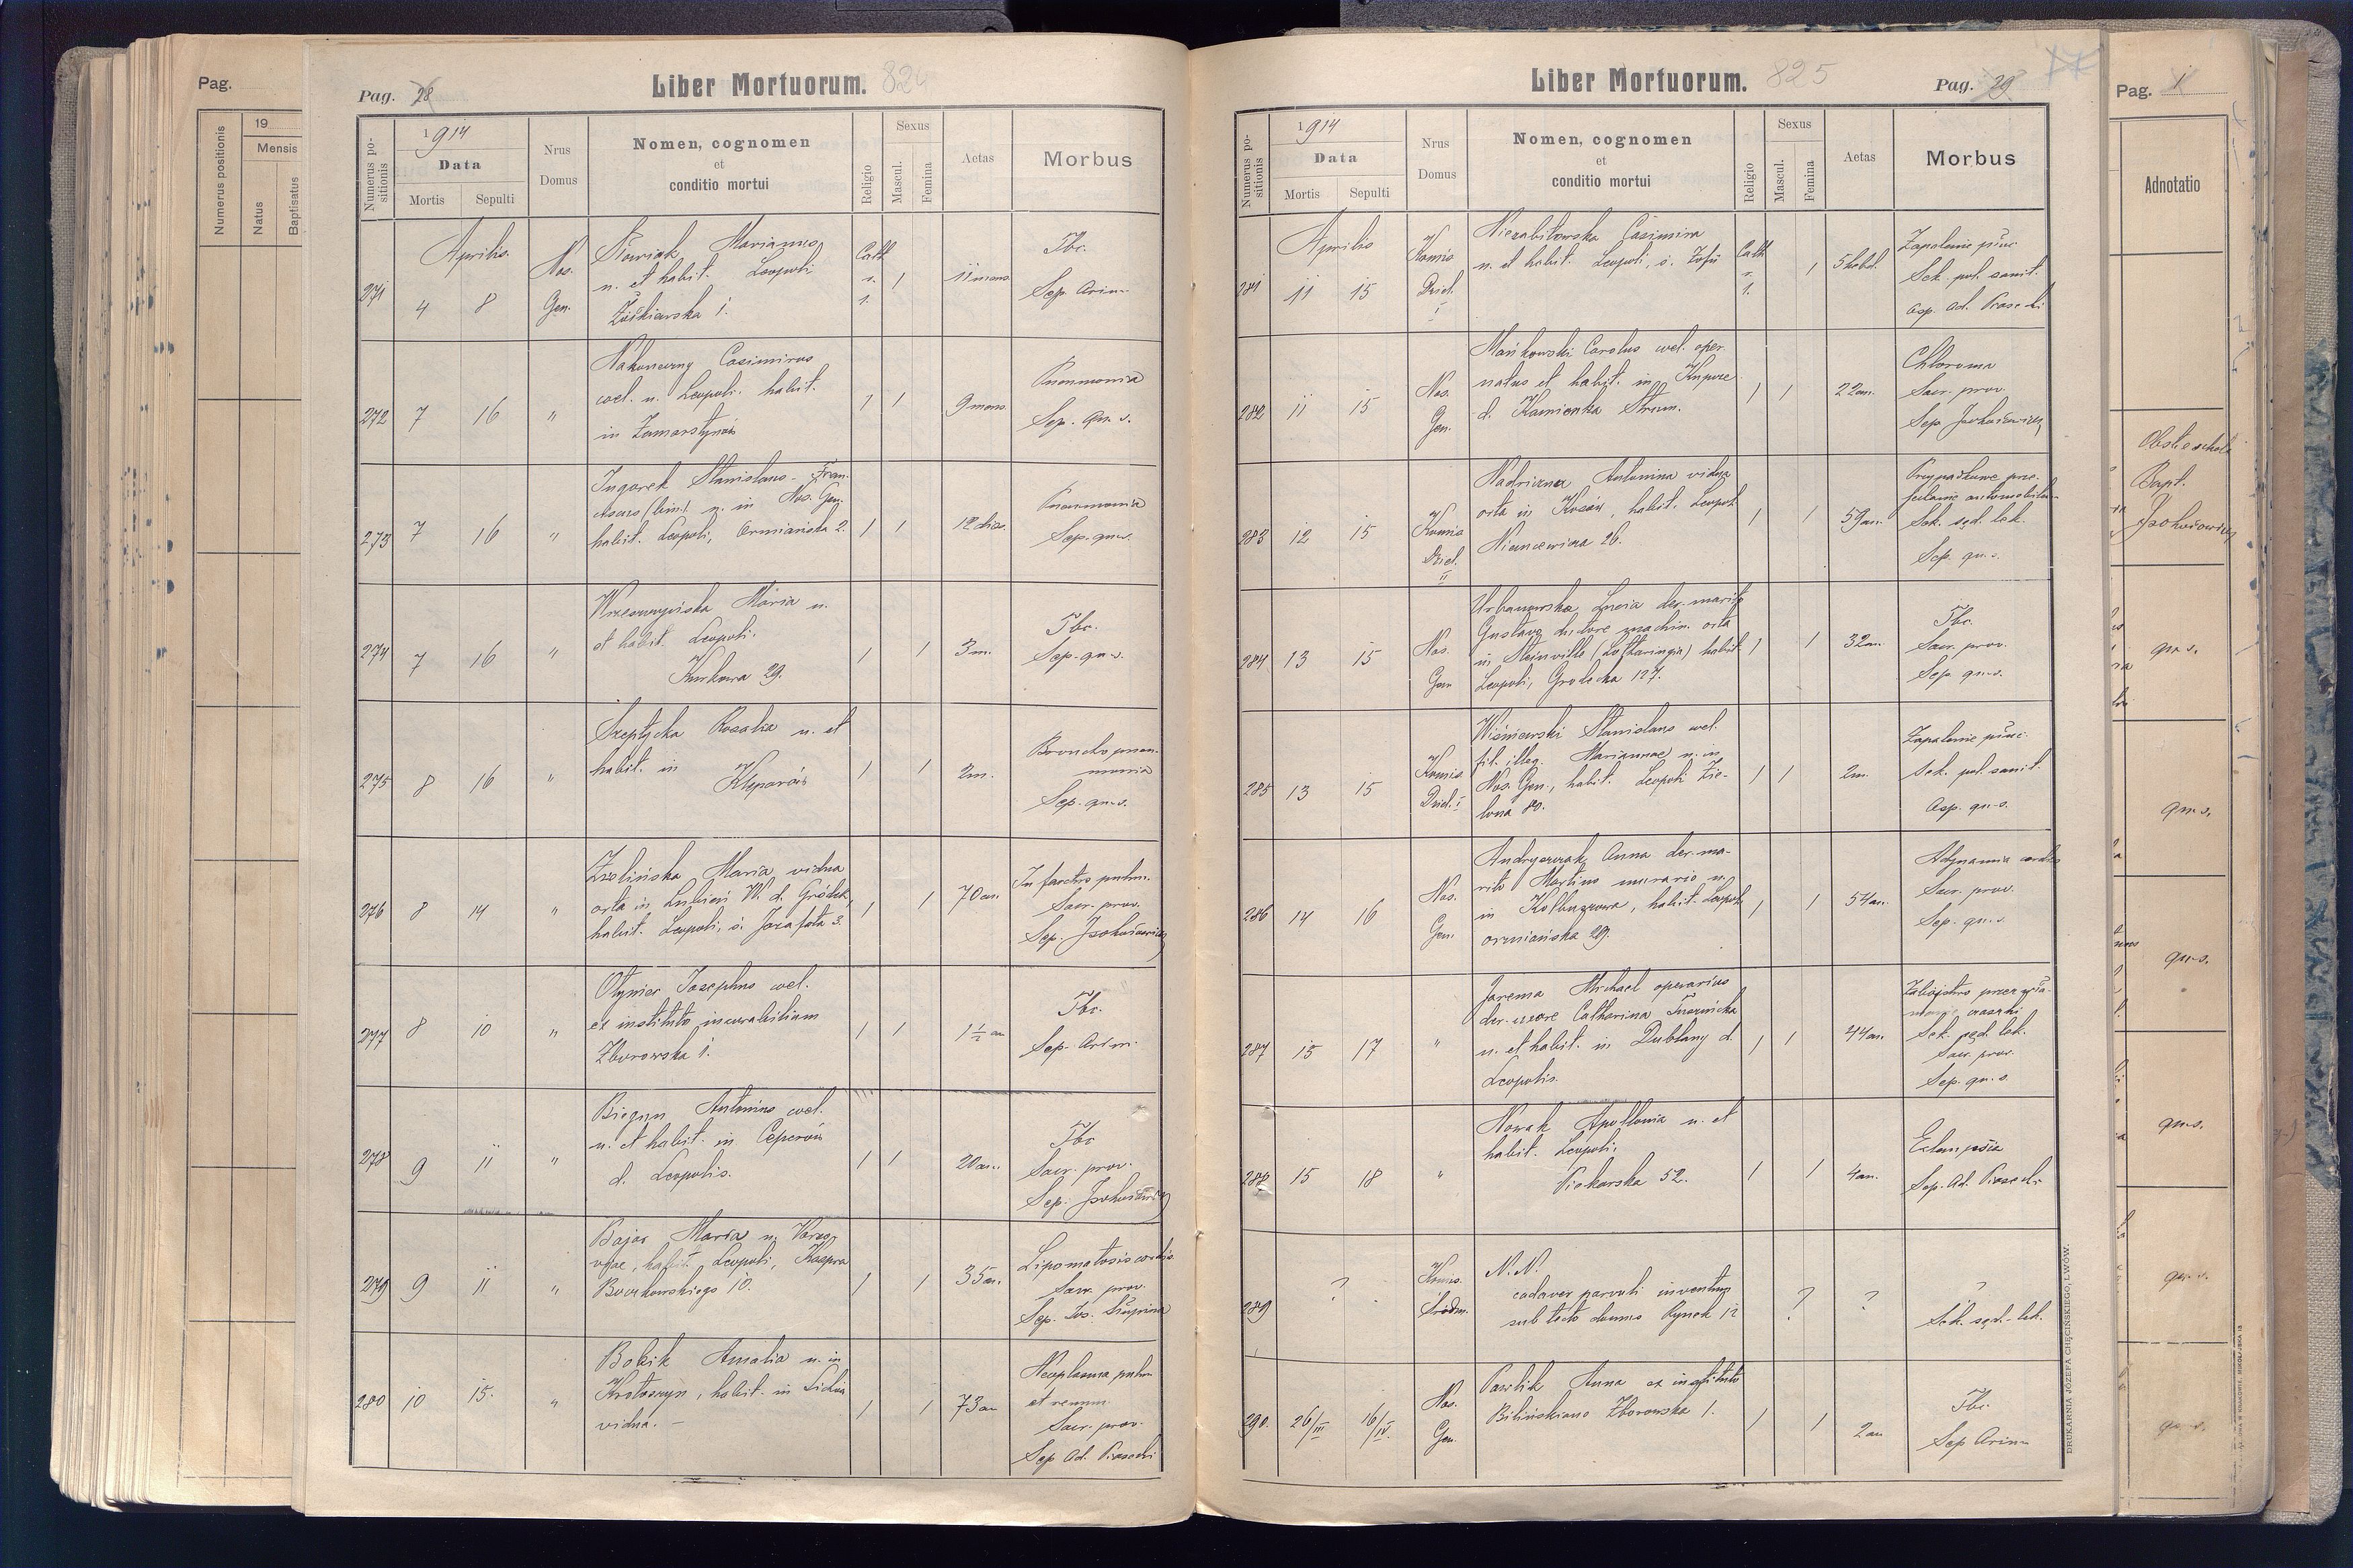 Pag.
Numerus positionis
19
Mensis
Natus
Baptisatus
Pag. 28
Liber Mortuorum. 824
Numerus positionis
1914
Data
Mortis
Sepulti
Nrus
Domus
Nomen, cognomen
et
conditio mortui
Religio
Sexus
Mascul.
Femina
Aetas
Morbus
271
Aprilis
4 8
Nos.
Gen.
Nowiak Marianus
n. et habit. Leopoli
1.
Cath
r.
1.
1
11 mens.
Tbc.
Sep. Arim
272 7 16 "
Casimirus
cael. n. Leopoli. habit.
in Zamarstynów
1 1
9 mens.
Pneumonia
Sep. qu. s.
273 7 16 "
Stanislaus-Fran-
ciscus (bin.) n. in Nos. Gen.
habit. Leopoli, Ormiańska 2.
1 1
12 dies.
Pneumonia
Sep. qu. s.
274 7 16 "
Maria n.
et habit. Leopoli.
Kurkowa 29.
1 1
3 m.
Tbc.
Sep. qu. s.
275 8 16 "
Szeptycka Rosalia n. et
habit. in
Kleparów
1 1
2 m.
Broncho pneu-
monia
Sep. qu. s.
276 8 14 "
Maria vidua
orta in Lubień W. d. Gródek,
habit. Leopoli, ś. Jozafata 3.
1 1
70 an.
Infarctus pulm.
Sacr. prov.
Sep.
277 8 10 "
Josephus cael.
ex instituto incurabilium
Zborowska 1.
1 1
1 1/2 an
Tbc.
Sep. Arim.
278 9 11 "
Biegun Antonius cael.
n. et habit. in Ceperów
d. Leopolis.
1 1
20 an.
Tbc
Sacr. prov.
Sep.
279 9 11 "
Bajor Maria n. Varso-
viae, habit. Leopoli, Kaspra
Boczkowskiego 10.
1 1
35 an.
Lipomatosis cordis
Sacr. prov.
Sep. Jos.
280 10 15. "
Bobik Amalia n. in
Krotoszyn, habit. in
vidua. —
1 1
73 an
Neoplasma pulm
et renum
Sacr. prov.
Sep Ad. Piasecki
Liber Mortuorum. 825
Pag. 29
Numerus positionis
1914
Data
Mortis
Sepulti
Nrus
Domus
Nomen, cognomen
et
conditio mortui
Religio
Sexus
Mascul.
Femina
Aetas
Morbus
281
Aprilis
11 15
Komis
Dziel.
I
Niezabitowska Casimira
n. et habit. Leopoli, ś. Zofii
Cath
r.
1.
1
5 hebd.
Zapalenie płuc
Sek. pol. sanit.
asp. Ad. Piasecki
282 11 15
Nos.
Gen.
Mańkowski Carolus cael. oper.
natus et habit. in
d. Kamionka Strum.
1 1
22 an.
Chloroma
Sacr. prov.
Sep.
283 12 15
Komis
Dziel.
II
Antonina vidua
orta in Kosów, habit. Leopoli
Niemcewicza 26.
1 1
59 an.
Przypadkowe prze-
jechanie automobilem
Sek. sąd. lek.
Sep. qu. s.
284 13 15
Nos.
Gen
Lucia der. marito
Gustavo machin. orta
in (Lottaringia) habit
Leopoli, Grodecka 127.
1 1
32 an.
Tbc.
Sacr. prov.
Sep. qu. s.
285 13 15
Komis
Dziel. I
Wiśniewski Stanislaus cael.
fil. illeg. Mariannae n. in
Nos. Gen., habit. Leopoli Zie-
lona 80.
1 1
2 m.
Zapalenie płuc.
Sek. pol. sanit.
Asp. qu. s.
286 14 16
Nos.
Gen.
Andryszczak Anna der. ma-
rito Martino murario n.
in Kolbuszowa, habit. Leopoli
ormiańska 29.
1 1
54 an.
Adynamia cordis
Sacr. prov.
Sep. qu. s.
287 15 17 "
Jarema Michael operarius
der. uxore Catharina
n. et habit. in Dublany d.
Leopolis.
1 1
44 an.
Zabójstwo przez zła-
manie czaszki
Sek. sąd. lek.
Sacr. prov.
Sep. qu. s.
288 15 18 "
Nowak Apollonia n. et
habit. Leopoli,
Piekarska 52.
1 1
4 an.
Eclampsia
Sep. Ad. Piasecki
289 ?
Komis.
Śródm.
N. N.
cadaver parvuli inventum
sub tecto domus Rynek 12
? ?
?
Sek. sąd.-lek.
290. 26/III 16/IV.
Nos.
Gen.
Pawlik Anna ex instituto
Biliński Zborowska 1.
1 1
2 an
Tbc.
Sep Arim
DRUKARNIA JÓZEFA CHĘCIŃSKIEGO, LWÓW.
Pag. 1
Adnotatio
Obstetr.
Bapt.
qu. s.
qu. s.
qu. s.
qu. s.
qu. s.
qu. s.